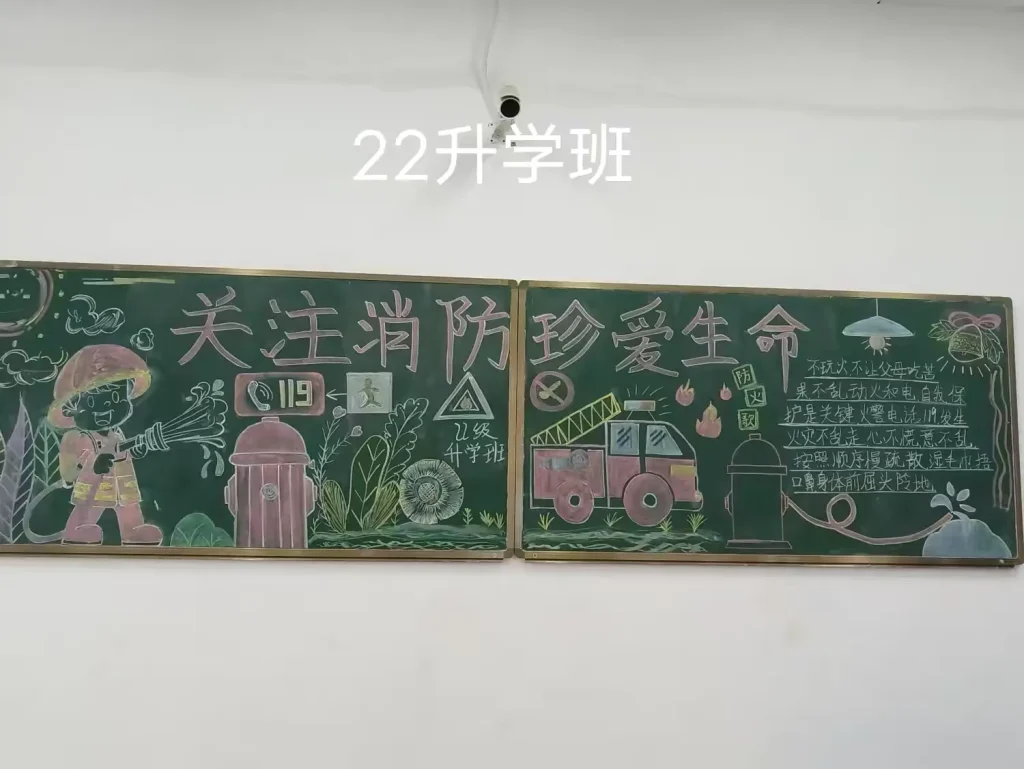 22升学班
关注消防
珍爱生命
119
22级
升学班
防
火
不玩火不让父母吃苦
果不乱动火和电,自我保
护是关键火警电话119发生
火灾不乱走心不慌意不乱,
按照顺序慢疏散湿毛巾捂
口鼻身体前屈头防地